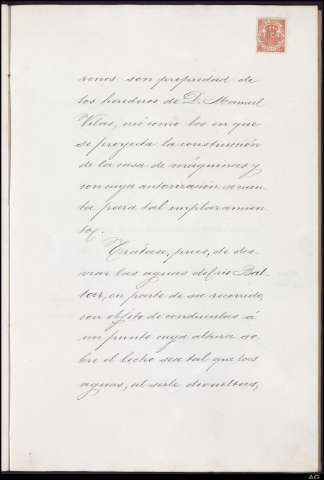 renos son propiedad de
los herederos de D. Manuel
Vilas, así como los en que
se proyecta la construcción
de la casa de máquinas y
con cuya autorización se cuen-
ta para tal emplazamien-
to.
Trátase, pues, de des-
viar las aguas del río Bal-
tar, en parte de su recorrido,
con objeto de conducirlas á
un punto cuya altura so-
bre el lecho sea tal que las
aguas, al serle devueltas,